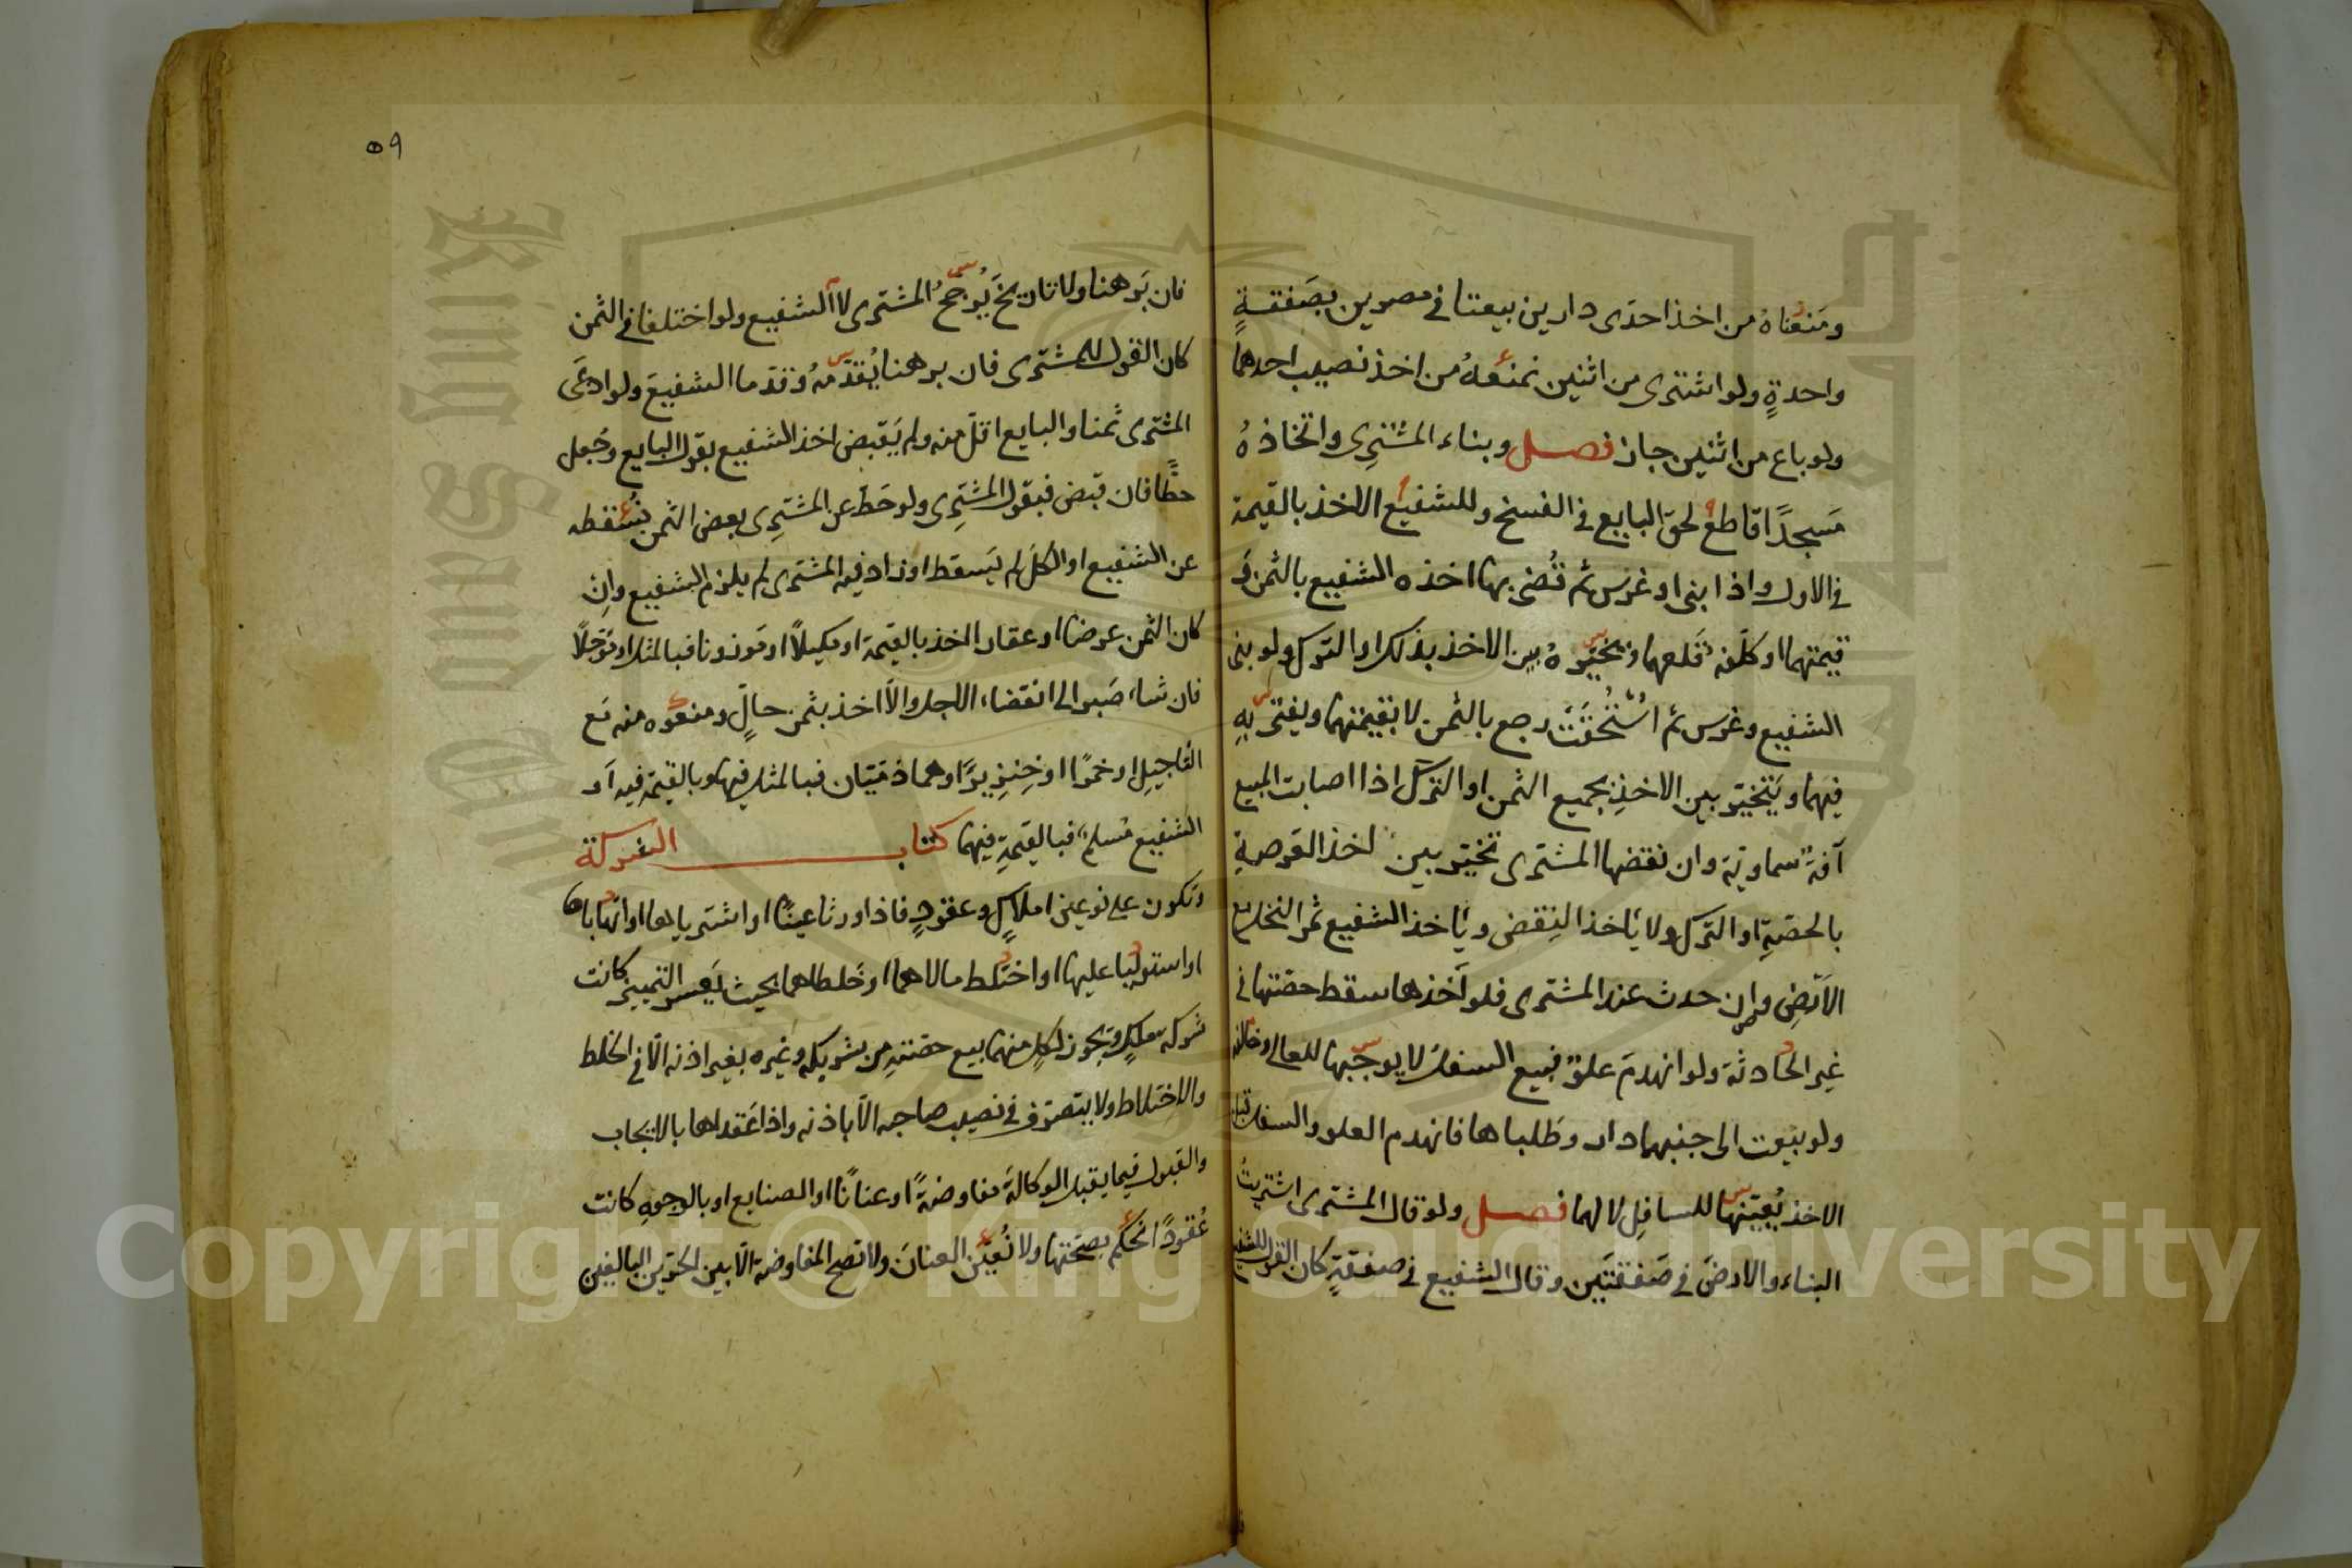 ومنعناه من اخذ احدى دارين بيعتا في مصرين بصفقةٍ
واحدةٍ ولو اشترى من اثنين نمنعهُ من اخذ نصيب احدهما
ولو باع من اثنين جاز فصل وبناء المشترِى واتخاذهُ
مَسجدًا قاطع لحق البايع في الفسخ وللشفيع الاخذ بالقيمة
في الاول واذا بنى او غرَسَ ثم قُضى بها اخذه الشفيع بالثمن وَ
قيمتهما او كلّفه قلعهما ونخيّرهُ بين الاخذ بذلك او الترك ولو بنى
الشفيع وغرس ثم استُحقَّت رجع بالثمن لا بقيمتهما ويفتى بهِ
فيهما ويتخيّر بين الاخذِ بجميع الثمن او الترك اذا اصابت المبيع
آفةٌ سماويّة وان نقضها المشترى تخيّر بين اخذ العَرصةِ
بالحصّةِ او الترك ولا يأخذ النِقض ويأخذ الشفيع ثمر النخل مع
الاَرضِ وان حدث عند المشترى فلو اَخذها سقط حصّتها في
غيِر الحادثة ولو انهدمَ علوٌ فبيع السفلُ لا يوجبها للعالى وخالفه
ولو بيعت الى جنبهما دار وطَلباها فانهدم العلو والسفل قبل
الاخذ يُعيّنها للسافِلِ لا لهما فصل ولو قال المشترى اشتريتُ
البناء والارضَ في صَفقتَين وقال الشفيع في صفقةٍ كان القول للشفيع
٥٩
فان بَرهنا ولا تاريخَ يُرجحُ المشترى لا الشفيع ولو اختلفا في الثمن
كان القول للمشترى فان برهنا يُقدّمهُ وقدّما الشفيعَ ولو ادعَى
المشترى ثمنا والبايع اقلّ منه ولم يَقبض اخذ الشفيع بقول البايع وجُعل
حطًّا فان قبض فبقول المشترِى ولو حَطّ عن المشترِى بعض الثمن نسُقطه
عن الشفيع او الكلّ لم يَسقط او زاد فيه المشترى لم يلزم الشفيع وانِ
كان الثمن عرضًا او عقارا اخذ بالقيمة او مكيلًا او مَوزونا فبالمثل او مؤجلًا
فان شاء صَبر الى انقضاء الاجل والّا اخذ بثمن حالٍّ ومنعوُه منه مَع
التاجيلِ او خمرًا او خِنزِيرًا وهما ذمّيّان فبالمثل فيها وبالقيمة فيه اَو
الشفيع مُسلم فبالقيمةِ فيهما كتاب الشركة
وتكون على نوعين املاكٍ وعقودٍ فاذا ورثا عينًا او اشترياها او اتّهباها
او استوليا عليها او اختلط مالاهما او خَلطاهما بحيث يَعسر التمييز كانت
شركة ملكٍ ويجوز لكلٍ منهما بيع حصّتهِ من شريكه وغيره بغير اذنه الّا في الخلط
والاختلاط ولا يتصرّف في نصيب صاحبه الّا باذنه واذا عَقداها بالايجاب
والقبول فيما يقبل الوكالةَ مفاوضةً او عنانًا او الصنايع او بالوجوهِ كانت
عُقودًا نحكم بصحّتها ولا نُعيّن العنانَ ولا تصح المفاوضة الّا بين الحرّين البالغين